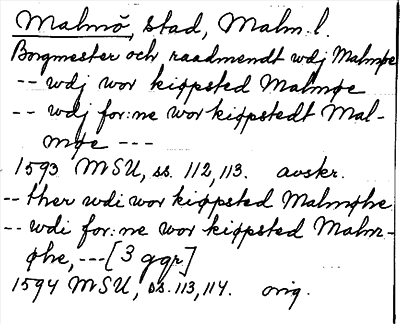 Malmö, stad, Malm. l.
Borgmester och raadmendt wdj Malmøe
-- wdj wor kiøpsted Malmøe
-- wdj for:ne wor kiøpstedt Mal-
møe ---
1593 MSU, ss. 112, 113. avskr.
-- ther wdi wor kiøpsted Malmøhe
-- wdi for:ne wor kiøpsted Malm-
øhe, --- [3 ggr]
1594 MSU, ss. 113, 114. orig.